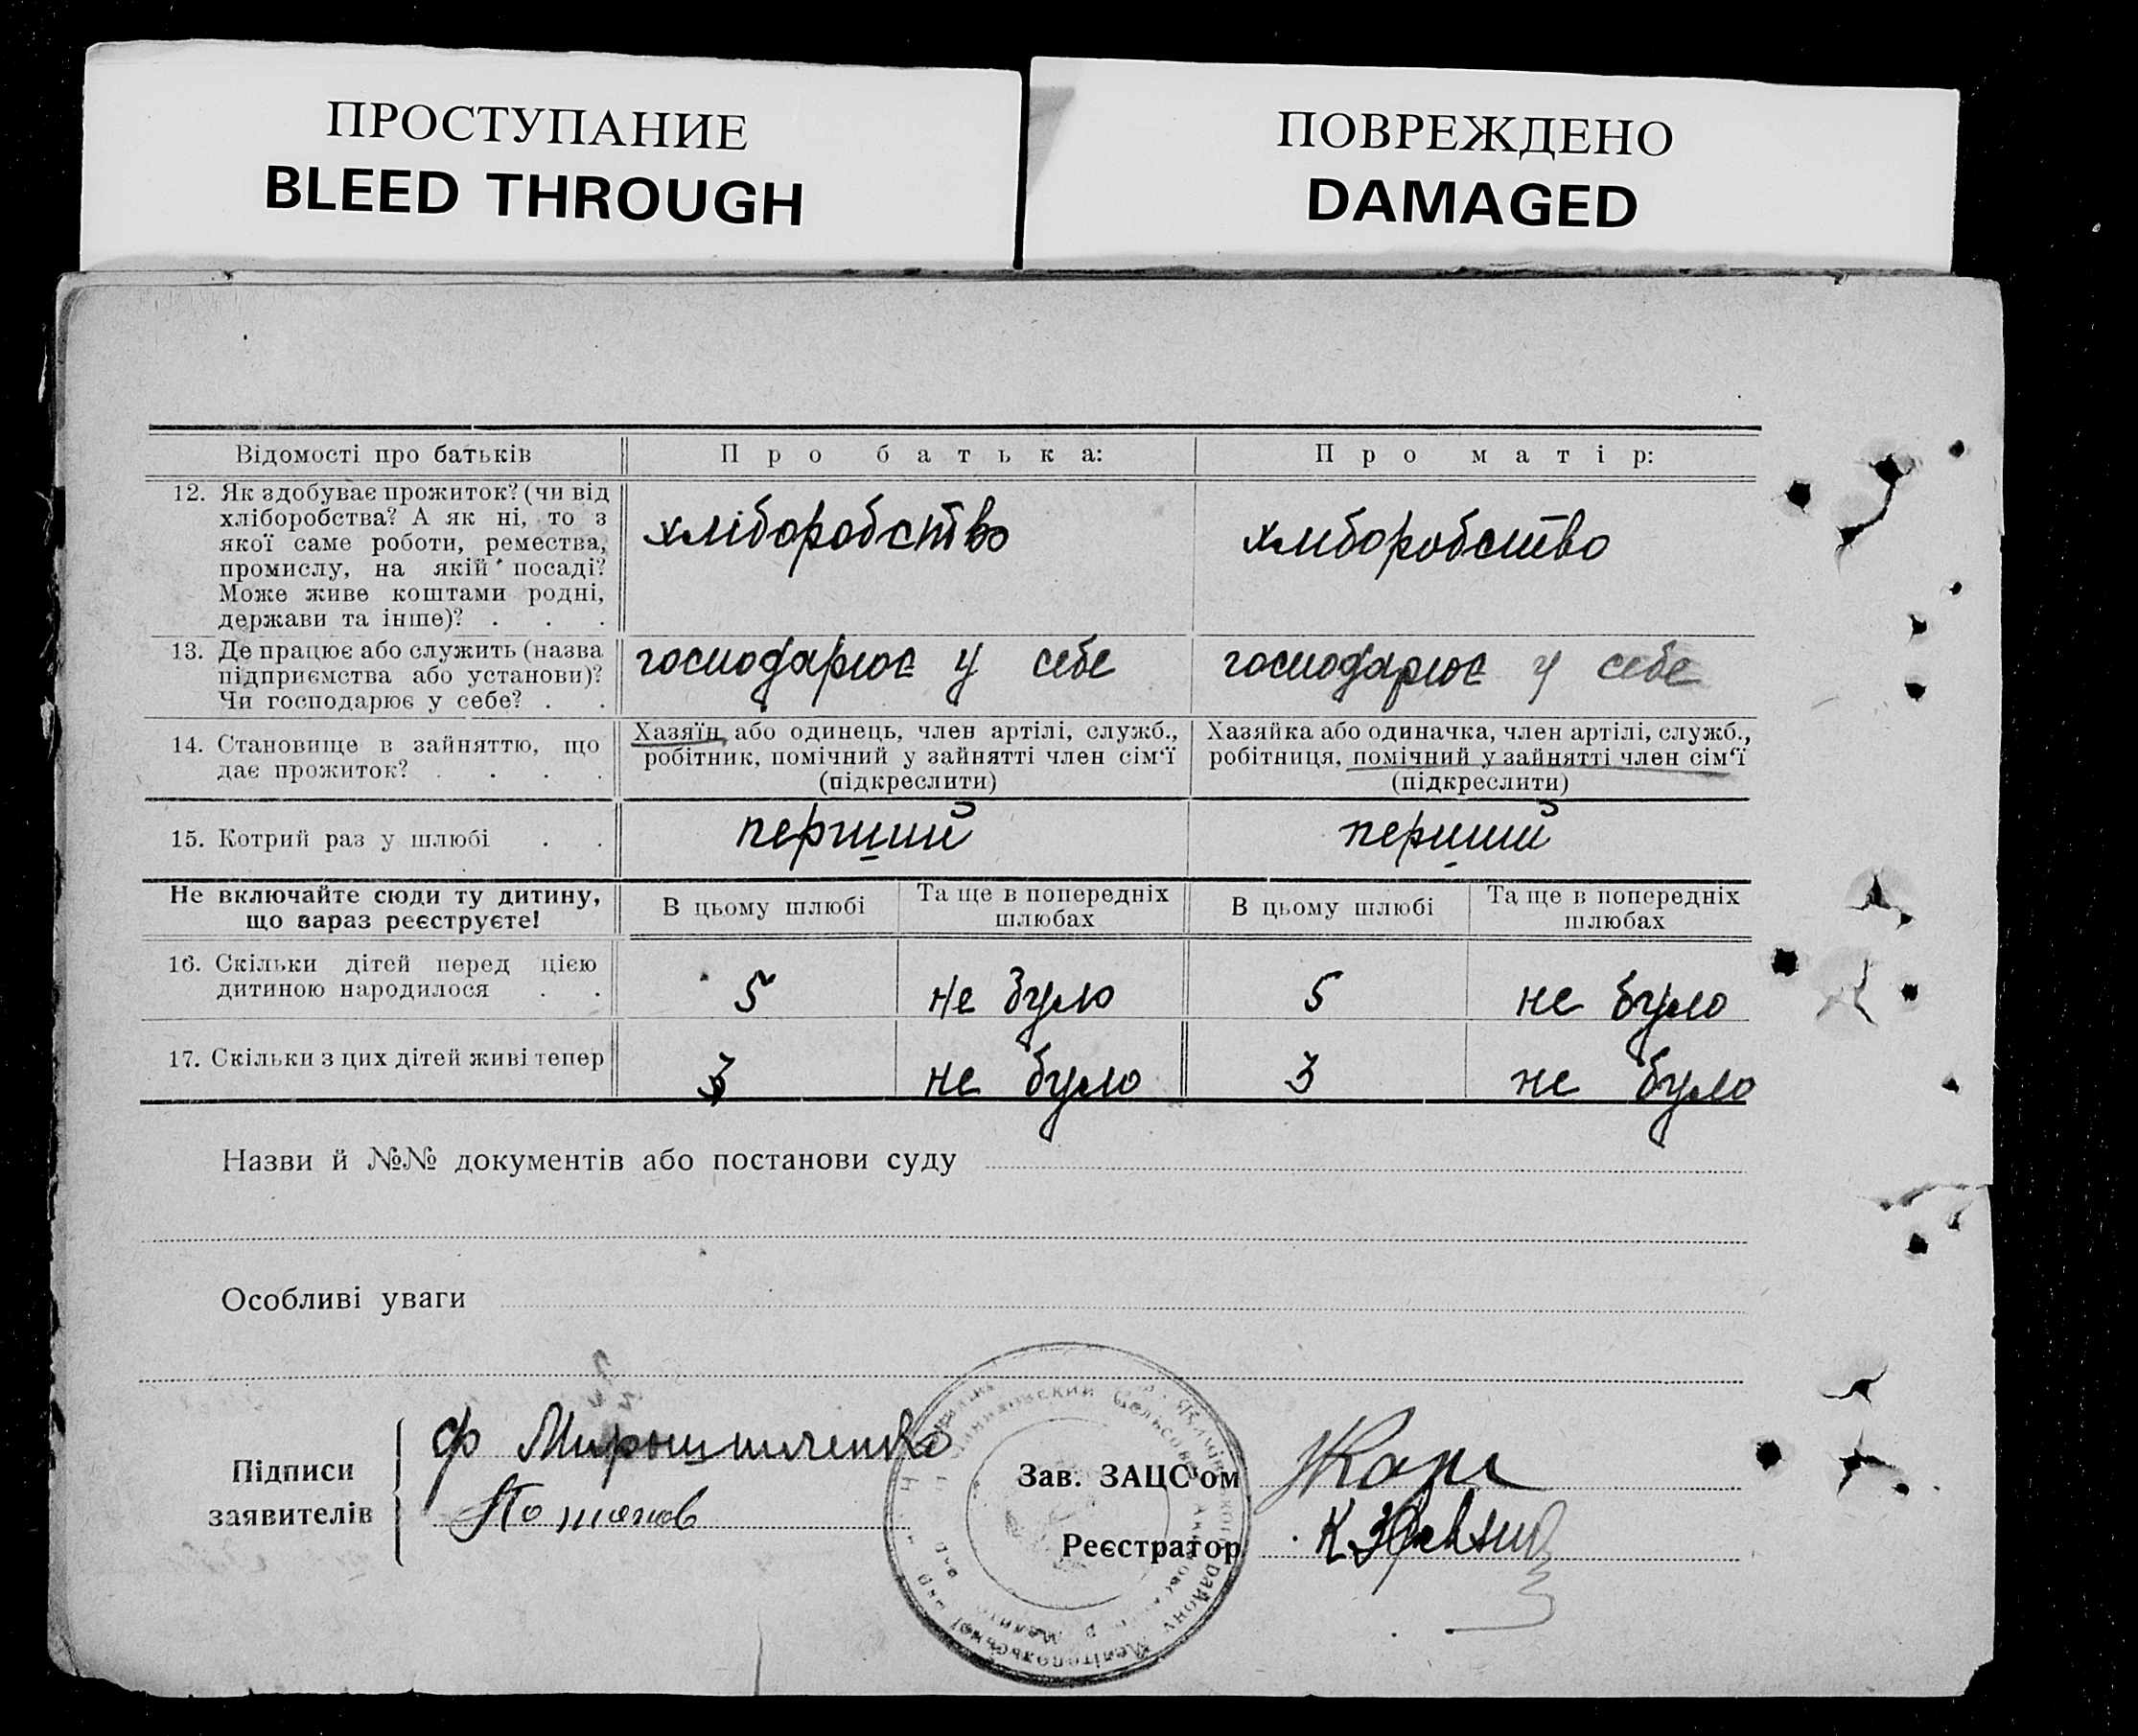 ПРОСТУПАНИЕ
BLEED THROUGH
ПОВРЕЖДЕНО
DAMAGED
Відомості про батьків
Про батька:
Про матір:
12. Як здобуває прожиток? (чи від
хліборобства? А як ні, то з
якої саме роботи, ремества,
промислу, на якій посаді?
Може живе коштами родні,
держави та інше)? . . .
хліборобство
хліборобство
13. Де працює або служить (назва
підприємства або установи)?
Чи господарює у себе? . .
господарює у себе
господарює у себе
14. Становище в зайняттю, що
дає прожиток? . . . .
Хазяїн або одинець, член артілі, служб.,
робітник, помічний у зайнятті член сім‘ї
(підкреслити)
Хазяйка або одиначка, член артілі, служб.,
робітниця, помічний у зайнятті член сім‘ї
(підкреслити)
15. Котрий раз у шлюбі . .
перший
перший
Не включайте сюди ту дитину,
що зараз реєструєте!
В цьому шлюбі
Та ще в попередніх
шлюбах
В цьому шлюбі
Та ще в попередніх
шлюбах
16. Скільки дітей перед цією
дитиною народилося . .
5
не було
5
не було
17. Скільки з цих дітей живі тепер
3
не було
3
не було
Назви й №№ документів або постанови суду
Особливі уваги
Підписи
заявителів
Ф Мирошниченко
Зав. ЗАЦС'ом
Реєстратор
району Мелітопольської